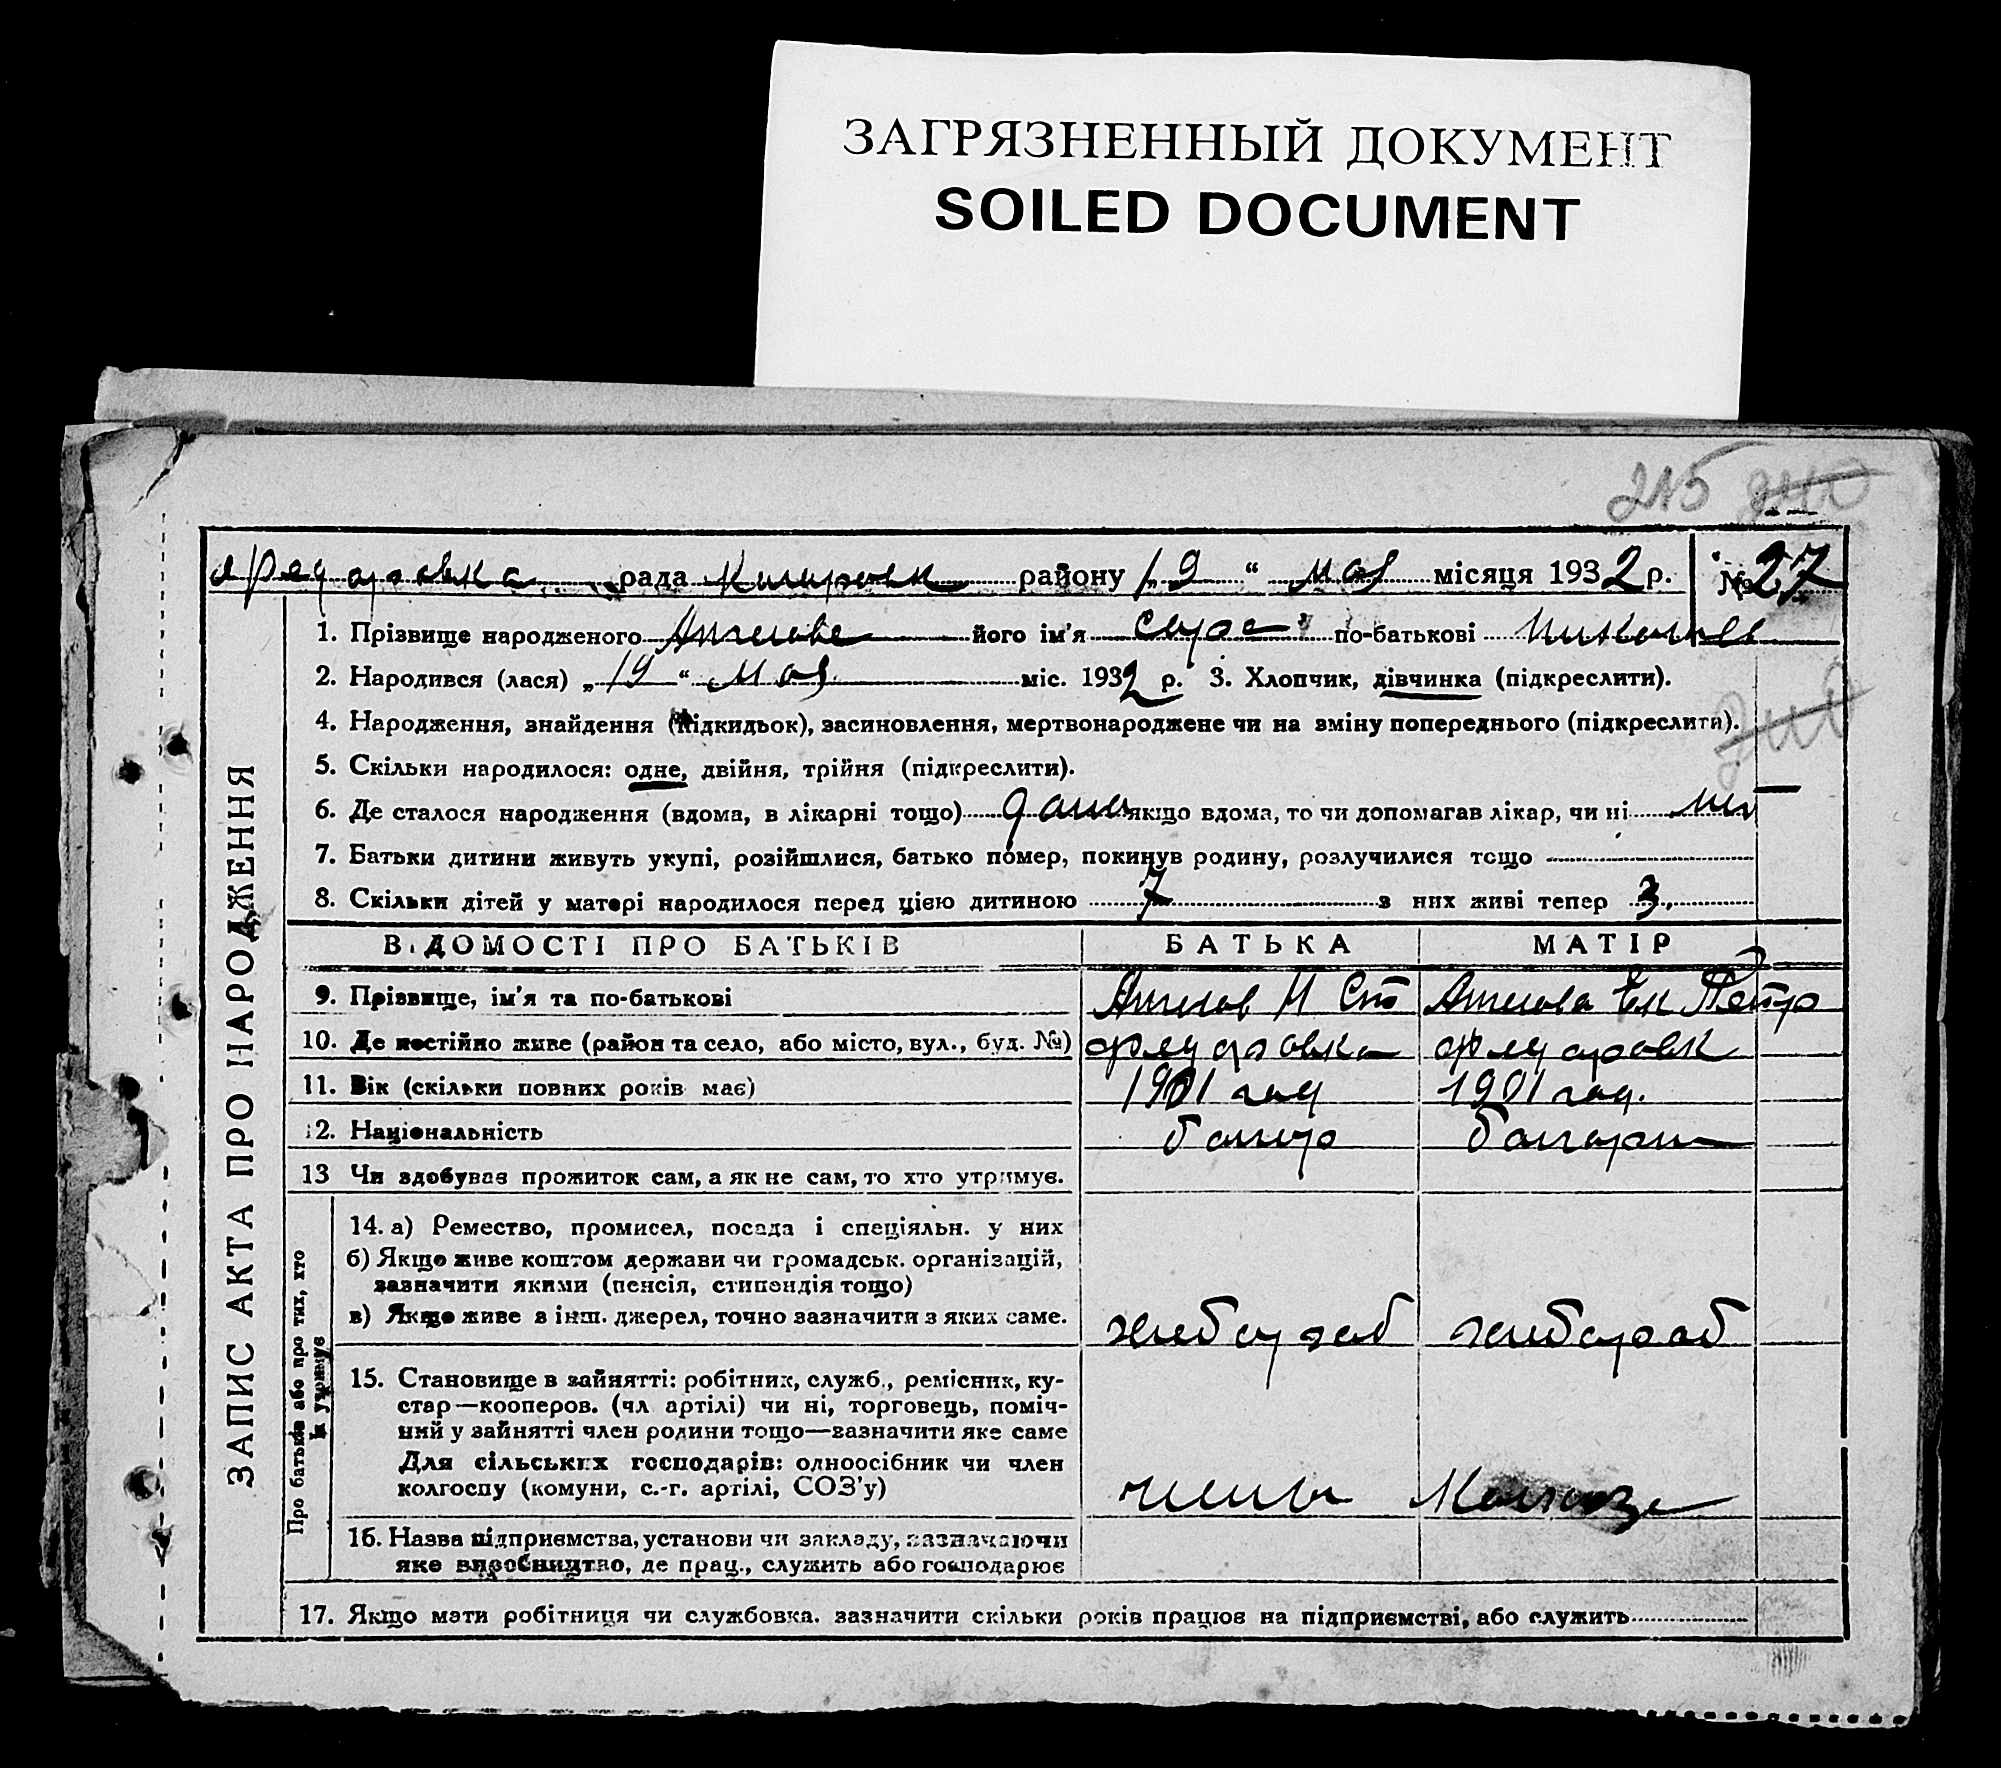 ЗАГРЯЗНЕННЫЙ ДОКУМЕНТ
SOILED DOCUMENT
215 240
рада району 19 “ мая місяця 1932 р. № 27
1. Прізвище народженого Ангелова його ім'я по-батькові
2. Народився (лася) „19“ мая міс. 1932 р. 3. Хлопчик, дівчинка (підкреслити).
4. Народження, знайдення (підкидьок), засиновлення, мертвонароджене чи на зміну попереднього (підкреслити).
5. Скільки народилося: одне, двійня, трійня (підкреслити).
6. Де сталося народження (вдома, в лікарні тощо) дома якщо вдома, то чи допомагав лікар, чи ні нет
7. Батьки дитини живуть укупі, розійшлися, батько помер, покинув родину, розлучилися тощо
8. Скільки дітей у матері народилося перед цією дитиною 7 з них живі тепер 3.
ЗАПИС АКТА ПРО НАРОДЖЕННЯ
ВІДОМОСТІ ПРО БАТЬКІВ БАТЬКА МАТІР
9. Прізвище, ім'я та по-батькові Ангелов Н Ст Ангелова Ек Петро
10. Де постійно живе (район та село, або місто, вул., буд. №)
11. Вік (скільки повних років має) 1901 год 1901 год.
12. Національність болгар болгарк
13 Чи здобував прожиток сам, а як не сам, то хто утримує.
Про батьків або про тих, хто їх утримує
14. а) Ремество, промисел, посада і спеціяльн. у них
б) Якщо живе коштом держави чи громадськ. організацій,
зазначити якими (пенсія, стипендія тощо)
в) Якщо живе з інш. джерел, точно зазначити з яких саме. хлебороб хлебороб
15. Становище в зайнятті: робітник, служб., ремісник, ку-
стар—кооперов. (чл артілі) чи ні, торговець, поміч-
ний у зайнятті член родини тощо—зазначити яке саме
Для сільських господарів: одноосібник чи член
колгоспу (комуни, с.-г. артілі, СОЗ'у) члены колхоза
16. Назва підприємства, установи чи закладу, зазначаючи
яке виробництво, де прац., служить або господарює
17. Якщо мати робітниця чи службовка. зазначити скільки років працює на підприємстві, або служить